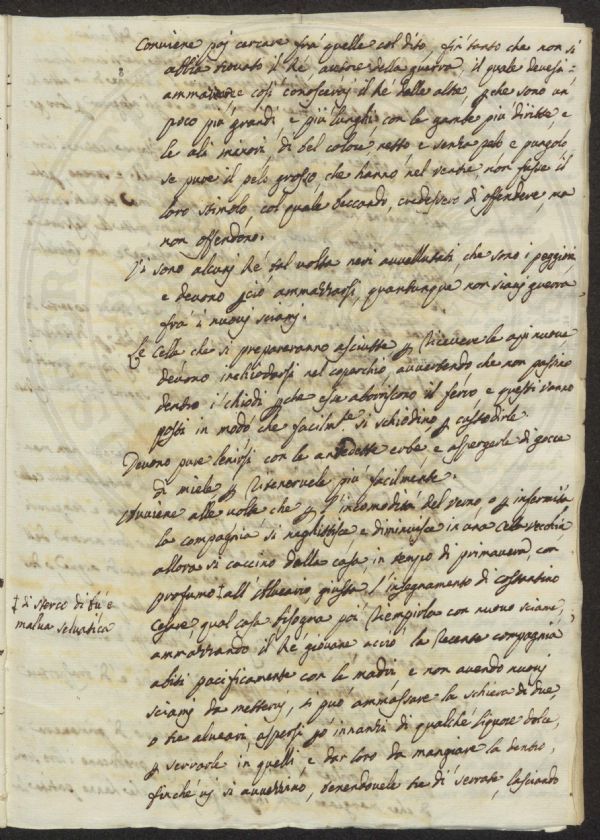 Conviene poi cercare frà quelle col dito, fin tanto che non si
abbia trovato il Rè, autore della guerra, il quale devesi
ammazzare e così conoscersi il rè dalle altre, pche sono un
poco più grandi e più lunghi con le gambe più diritte, e
le ali minori di bel colore netto e senza pelo e pungolo
se pure il pelo grosso, che hanno nel ventre non fusse il
loro stimolo, col quale beccando, credessero di offendere, ma
non offendono.
Vi sono alcuni Rè, tal volta neri avvellutati, che sono i peggiori
e devono pciò ammazzarsi, quantunque non siavi guerra
frà i nuovi sciami.
Le Celle che si prepareranno asciutte p ricevere le api nuove,
devono inchiodarsi nel coparchio, avvertendo che non passino
dentro i chiodi pche esse aborriscono il ferro, e questi vanno
posti in modo che facilmte si schiodino p custodirle.
Devono pure lenirsi con le antedette erbe, e aspergerle di gocce
di miele p ritenervele più facilmente.
Avviene alle volte che p l'incomodità del verno, o p infermità
la compagnia si neghittisce e diminuisce in una Cella vecchia
allora si caccino dalla casa in tempo di primavera, con
profumo ‡ all'Alveario giusta l'insegnamento di costantino
‡ di sterco di bú e
malva selvatica
Cesare, qual casa bisogna poi riempirla con nuovo sciame,
ammazzando il Rè giovane acciò la recente compagnia
abiti pacificamente con le madri e non avendo nuovi
sciami da mettervi, si può ammassare la schiera di due
o tre alveari, aspersi pò innanzi di qualche liquore dolce,
p servarle in quelli, e dar loro da mangiare là dentro,
finché vi si avvezzino, tenendovele tre dì serrate, lasciando